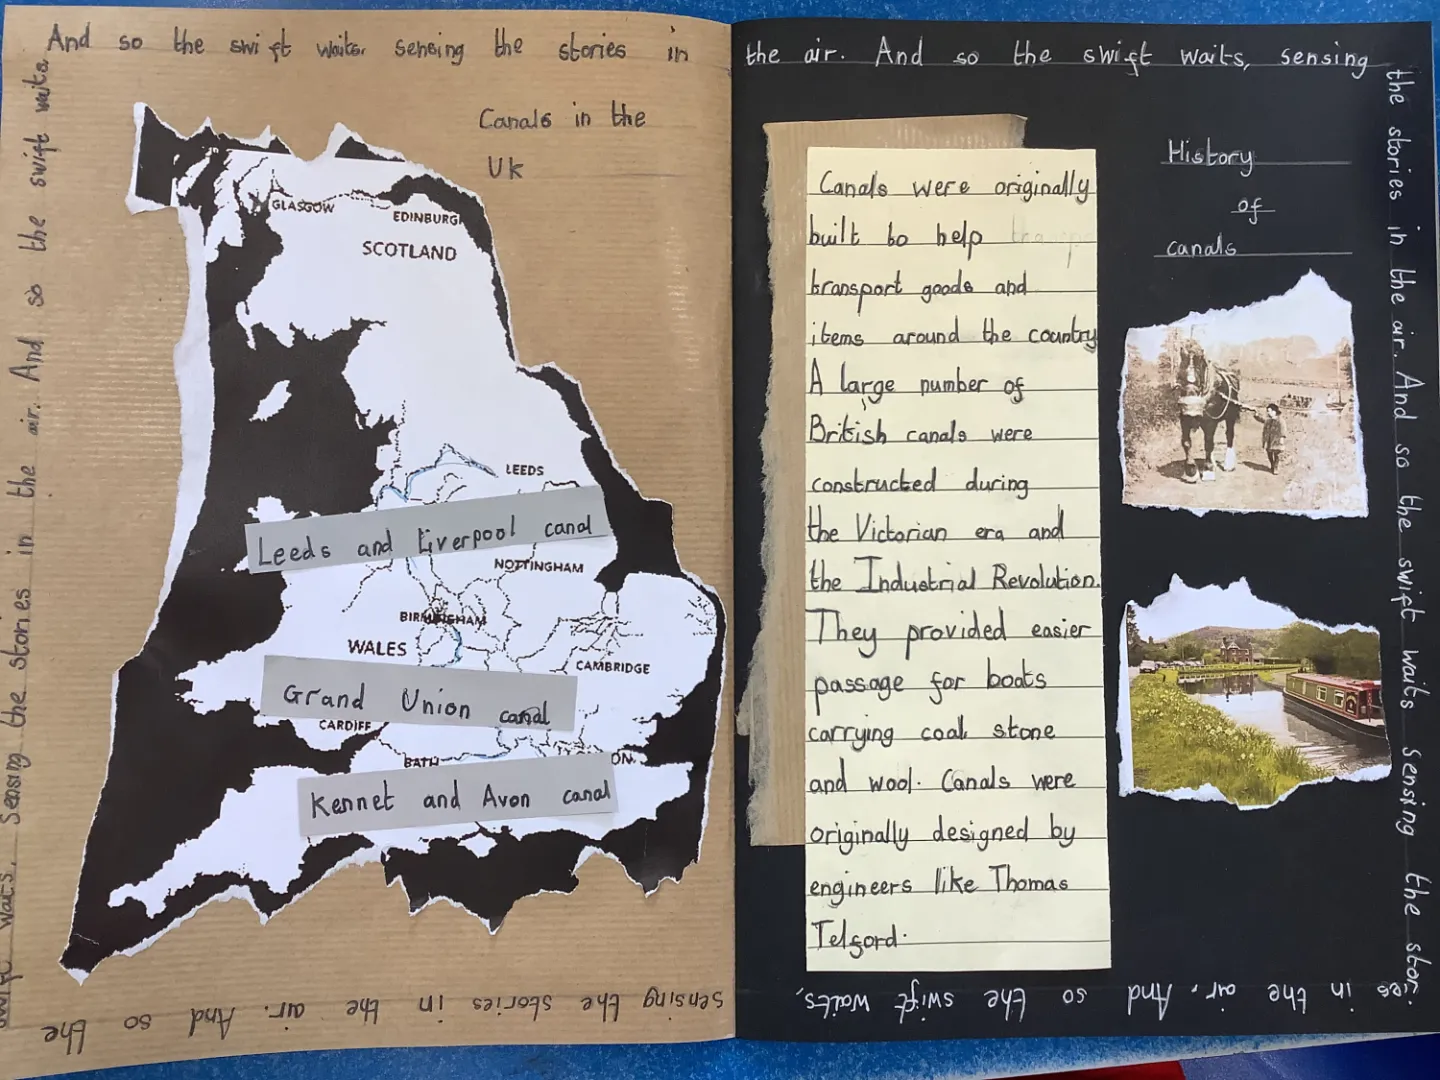 And so the swift waits. sensing the stories in
the air. And so the swift waits, sensing
the stories in the air. And so the swift waits sensing the stor.
es in the air. And so the swift waits,
sensing the stories in the air. And so the
swift waits. Sensing the stories in the air. And so the swift waits.
Canals in the
UK
GLASGOW
EDINBURG
SCOTLAND
LEEDS
Leeds and Liverpool canal
NOTTINGHAM
BIRMINGHAM
WALES
CAMBRIDGE
Grand Union canal
CARDIFF
BATH
ON
Kennet and Avon canal
Canals were originally
built to help
transport goods and
items around the country
A large number of
British canals were
constructed during
the Victorian era and
the Industrial Revolution.
They provided easier
passage for boats
carrying coal, stone
and wool. Canals were
originally designed by
engineers like Thomas
Telford.
History
of
canals